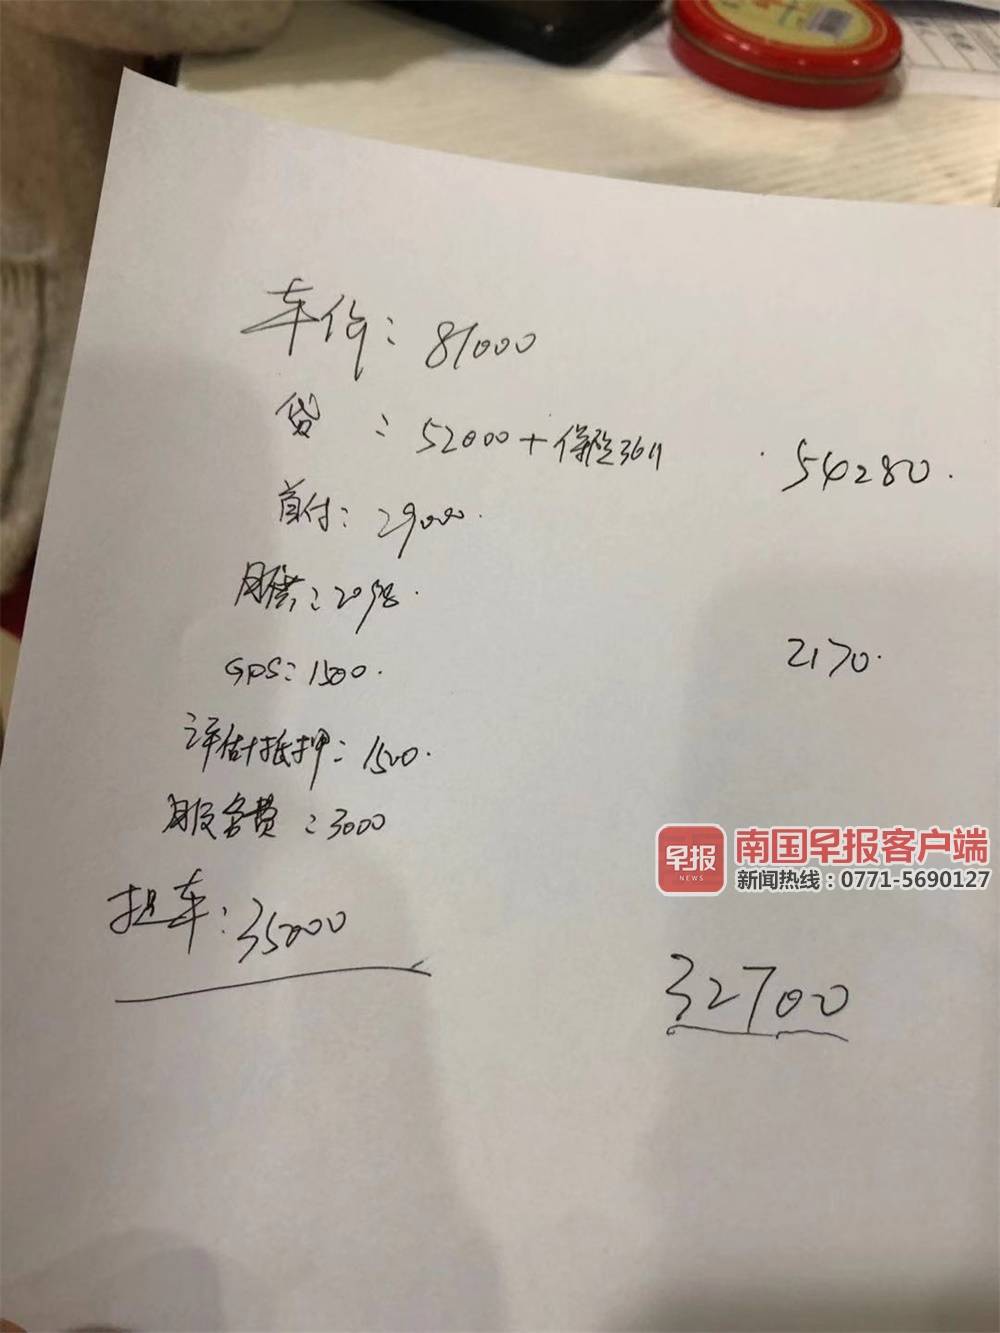 车价：81000
贷：52000+保险3611
54280.
首付：29000.
月供：2098.
2170.
GPS：1500.
评估抵押：1500.
服务费：3000
早报
NEWS
南国早报客户端
新闻热线：0771-5690127
提车：35000
32700